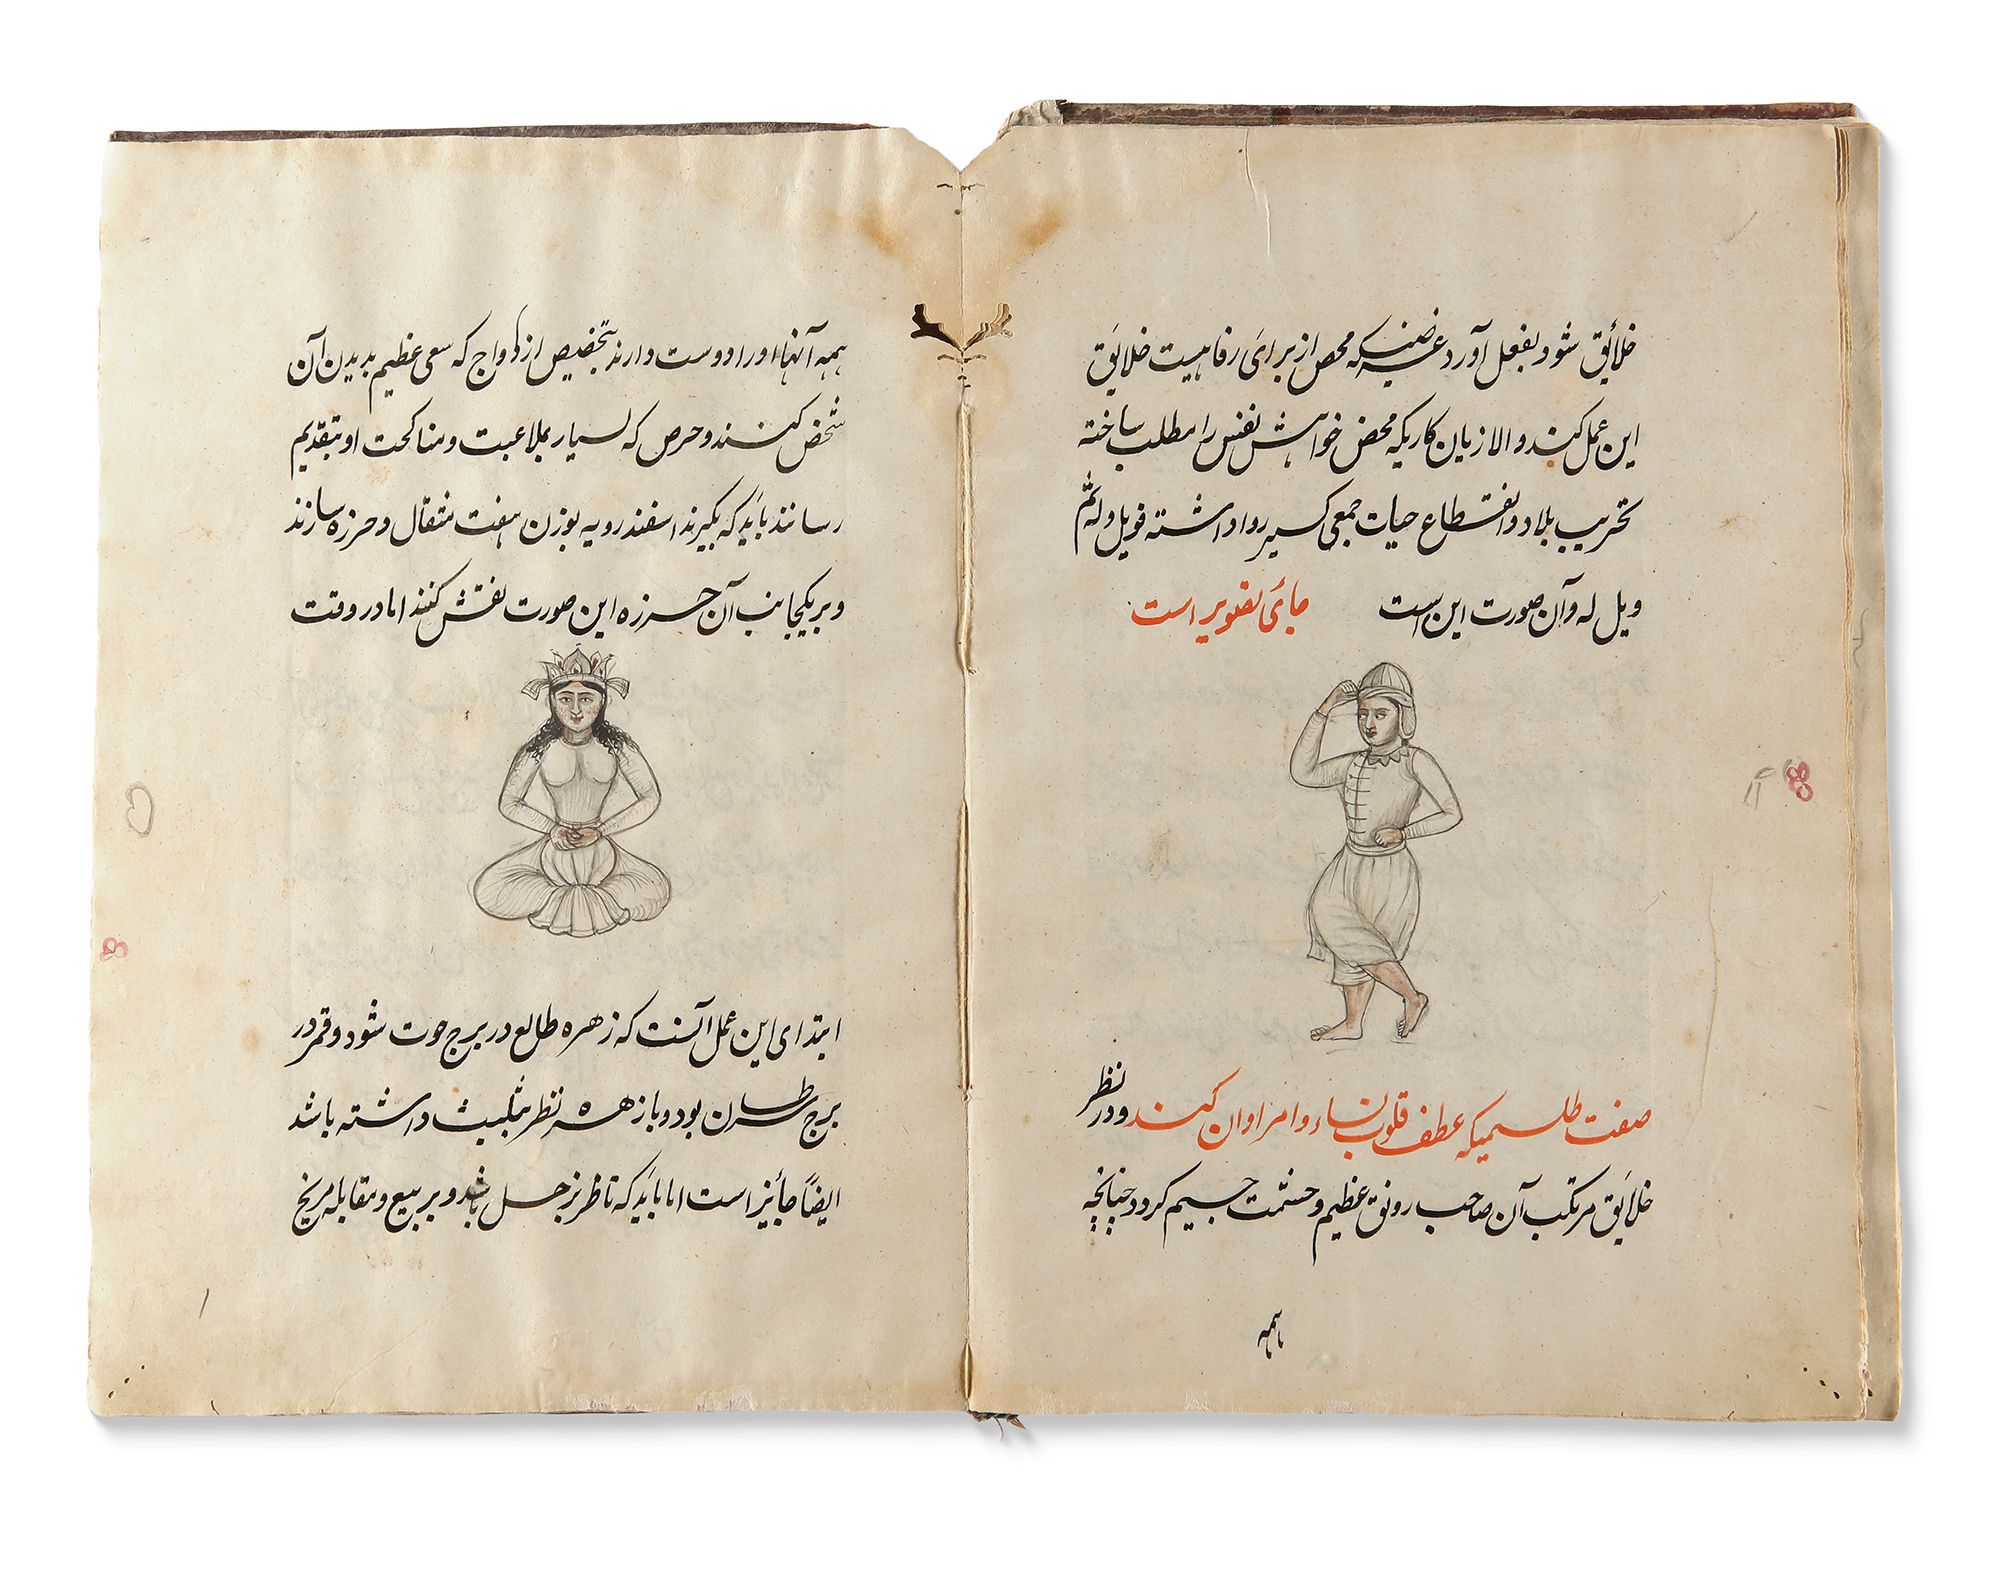 خلائق شود بفعل آورد غرضیکه محض از برای رفاهیت خلایق
این عمل کند و الا زیان کاریکه محض خواهش نفس را مطلب ساخته
تخریب بلاد و انقطاع حیات جمعی کسیر روا داشته فویل له ثم
ویل له و آن صورت این است جای تصویر است
صفت طلسمیکه عطف قلوب نساء و امرا و ان کند و در نظر
خلایق مرتکب آن صاحب رونق عظیم و حشمت جسیم کردد چنانچه
باهمه
همه آنها او را دوست دارند بتخصیص ازدواج که سعی عظیم بدیدن آن
شخص کنند و حرص که بسیار بملاعبت و مناکحت او بتقدیم
رسانند باید که بگیرند اسفندرویه بوزن هفت مثقال و حرزه سازند
و بر یکجانب آن حرزه این صورت نقش کنند اما در وقت
ابتدای این عمل آنست که زهره طالع در برج حوت شود و قمر در
برج سرطان بود و با زهره نظر تثلیث داشته باشد
ایضاً جائیز است اما باید که ناظر بزحل باشد و بربیع و مقابله مریخ